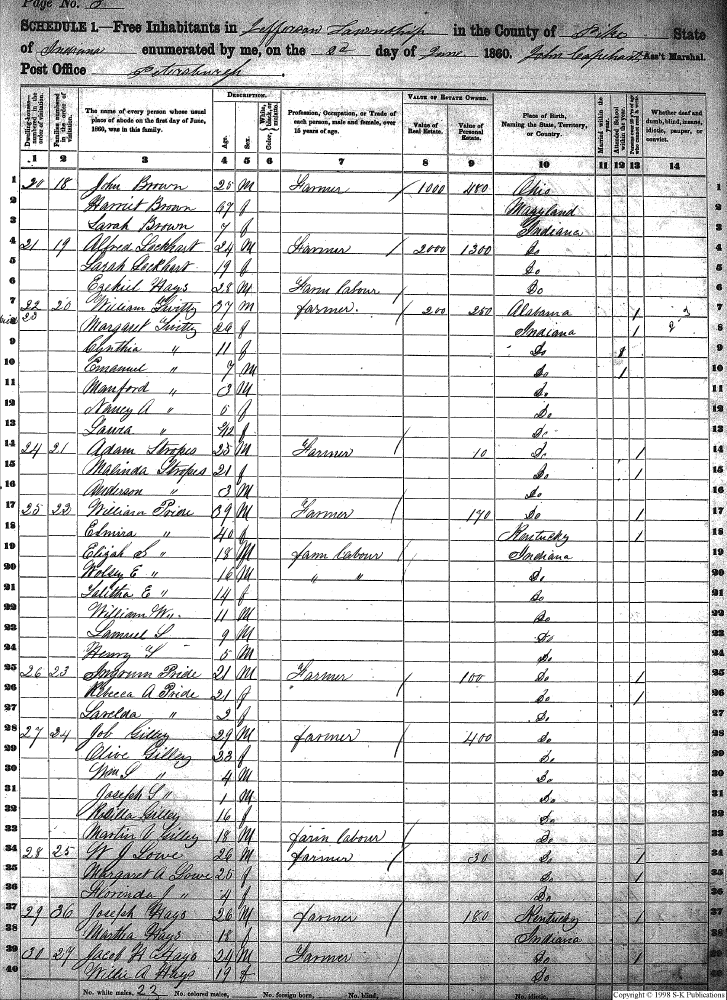 Page No. 3
SCHEDULE 1.—Free Inhabitants in Jefferson Township in the County of Pike State
of Indiana enumerated by me, on the 2d day of June 1860. John Capehart Ass't Marshal.
Post Office Petersburgh.
Dwelling-houses—numbered in the order of visitation.
Families numbered in the order of visitation.
The name of every person whose usual place of abode on the first day of June, 1860, was in this family.
DESCRIPTION.
Age.
Sex.
Color, White, black, or mulatto.
Profession, Occupation, or Trade of each person, male and female, over 15 years of age.
VALUE OF ESTATE OWNED.
Value of Real Estate.
Value of Personal Estate.
Place of Birth, Naming the State, Territory, or Country.
Married within the year.
Attended School within the year.
Whether deaf and dumb, blind, insane, idiotic, pauper, or convict.
1 2 3 4 5 6 7 8 9 10 11 12 13 14
1 20 18 John Brown 25 M Farmer / 1000 480 Ohio 1
2 Harriet Brown 67 f Maryland 2
3 Sarah Brown 7 f Indiana 3
4 21 19 Alfred Lockhart 24 M Farmer / 2000 1300 Do 4
5 Sarah Lockhart 19 f Do 5
6 Ezekiel Hays 28 M Farm labour / Do 6
7 22 20 William 37 M farmer. / 200 250 Alabama / 7
8 23 Margaret 26 f Indiana / 8
9 Cynthia " 11 f Do 1 9
10 Emanuel " 7 M Do 1 10
11 Manford " 3 M Do 11
12 Nancy A " 5 f Do 12
13 Laura " f Do 13
14 24 21 Adam Stropes 25 M Farmer / 10 Do / 14
15 Malinda Stropes 21 f Do / 15
16 Anderson " 3 M Do 16
17 25 22 William Pride 39 M Farmer / 170 Do / 17
18 Elmira " 40 f Kentucky / 18
19 Elijah S " 18 M farm labour / Indiana 19
20 Wolsey E " 16 M " " Do 20
21 Talitha E " 14 f Do 21
22 William W " 11 M Do 22
23 Samuel S 9 M Do 23
24 Henry T 5 M Do 24
25 26 23 Pride 21 M Farmer / 100 Do / 25
26 Rebecca A Pride 21 f Do / 26
27 Lavelda " 2 f Do 27
28 27 24 Job Gilley 29 M farmer / 400 Do 28
29 Olive Gilley 23 f Do 29
30 Wm S " 4 M Do 30
31 Joseph S " 1 M Do 31
32 Rosilla Gilley 16 f Do 32
33 Martin V Gilley 18 M farm labour / Do 33
34 28 25 W J Lowe 26 M farmer / 30 Do / 34
35 Margaret A Lowe 25 f Do / 35
36 Florinda J " 4 f Do 36
37 29 26 Joseph Hays 26 M farmer / 180 Kentucky / 37
38 Martha Hays 18 f Indiana 38
39 30 27 Jacob H Hays 24 M Farmer / Do / 39
40 Willie A Hays 19 f Do 40
No. white males, 22 No. colored males, No. foreign born, No. blind, No. idiotic,
Copyright © 1998 S-K Publications